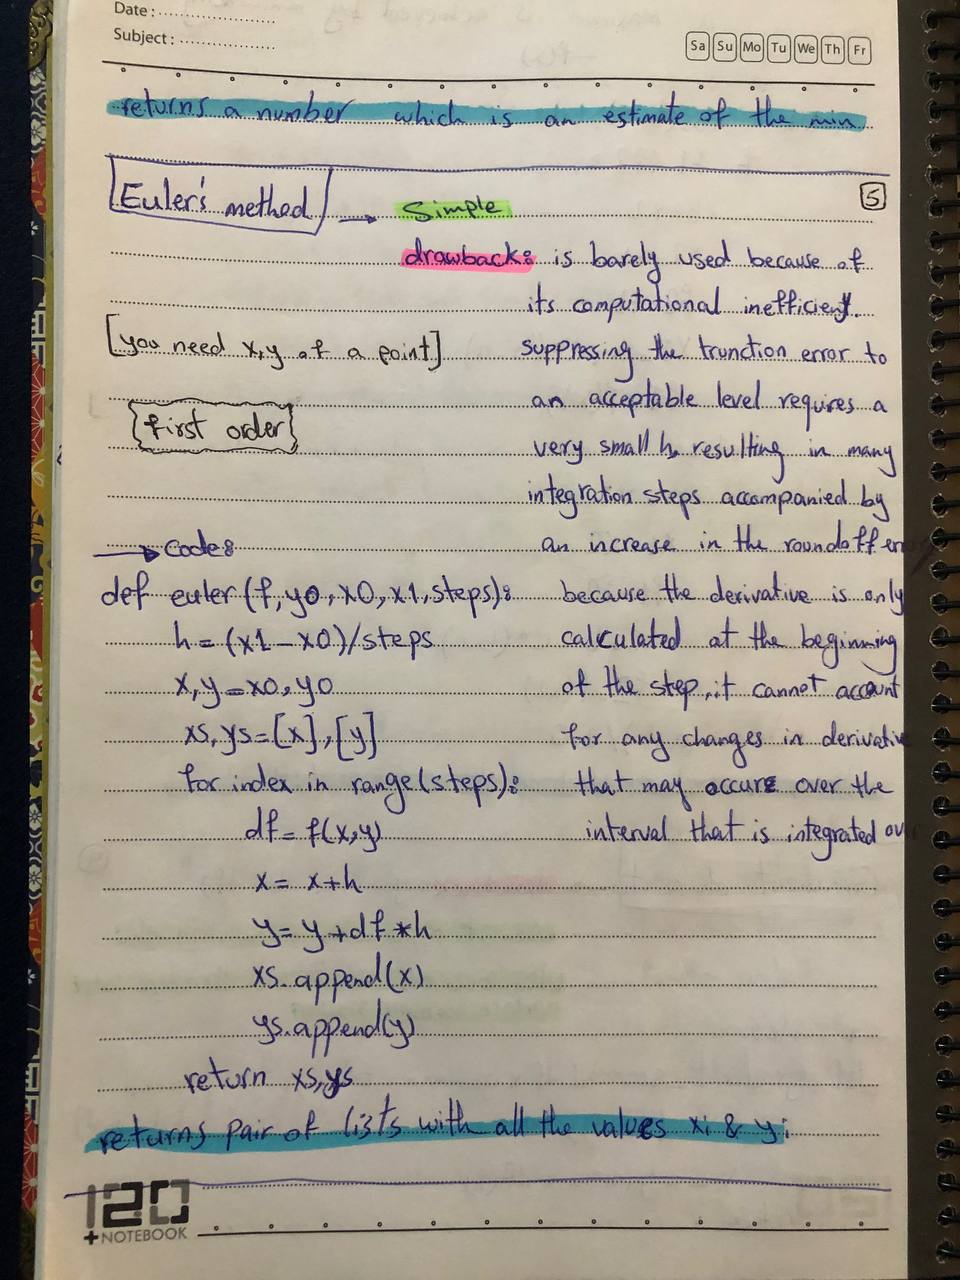 Date : ......................
Subject : ..................
Sa Su Mo Tu We Th Fr
returns a number which is an estimate of the min
5
Euler's method → Simple
drawback: is barely used because of
its computational inefficient.
[you need x,y of a point]
suppressing the trunction error to
an acceptable level requires a
{first order}
very small h, resulting in many
integration steps accompanied by
an increase in the roundoff error
because the derivative is only
calculated at the beginning
of the step, it cannot account
for any changes in derivative
that may occure over the
interval that is integrated over
→ Code:
def euler(f,y0,x0,x1,steps):
h=(x1-x0)/steps
x,y=x0,y0
xs,ys=[x],[y]
for index in range(steps):
df=f(x,y)
x= x+h
y= y+df*h
xs.append(x)
ys.append(y)
return xs,ys
returns pair of lists with all the values xi & yi
120
+NOTEBOOK